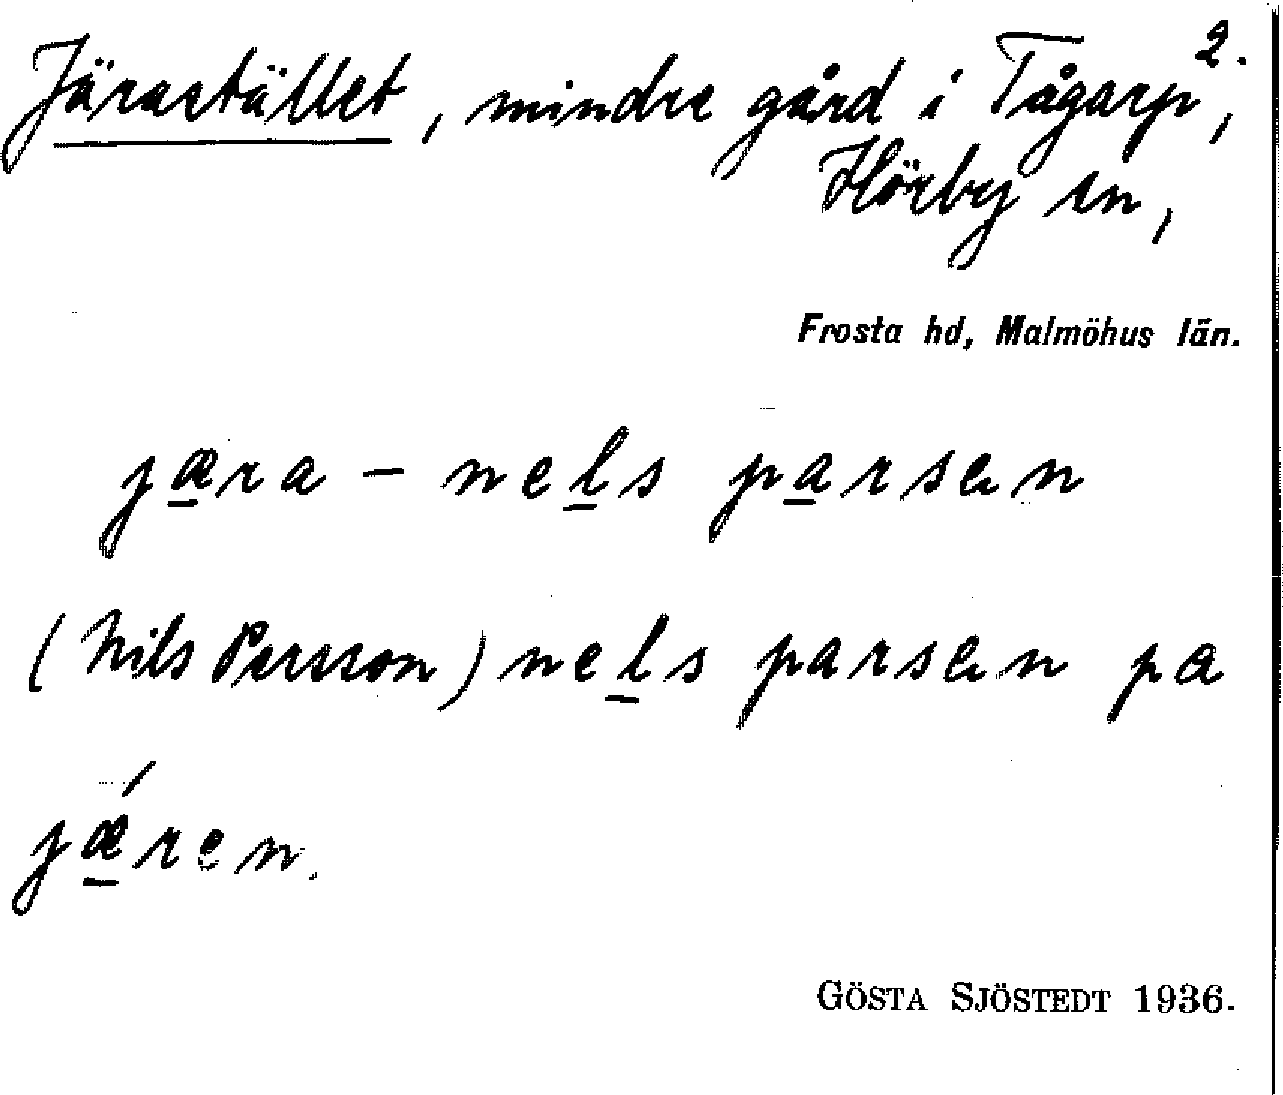 Järastället, mindre gård i Tågarp 2.,
Hörby sn,
Frosta hd, Malmöhus län.
jæra - nels parsen
(Nils Persson) nels parsen pa
jǽren.
GÖSTA SJÖSTEDT 1936.